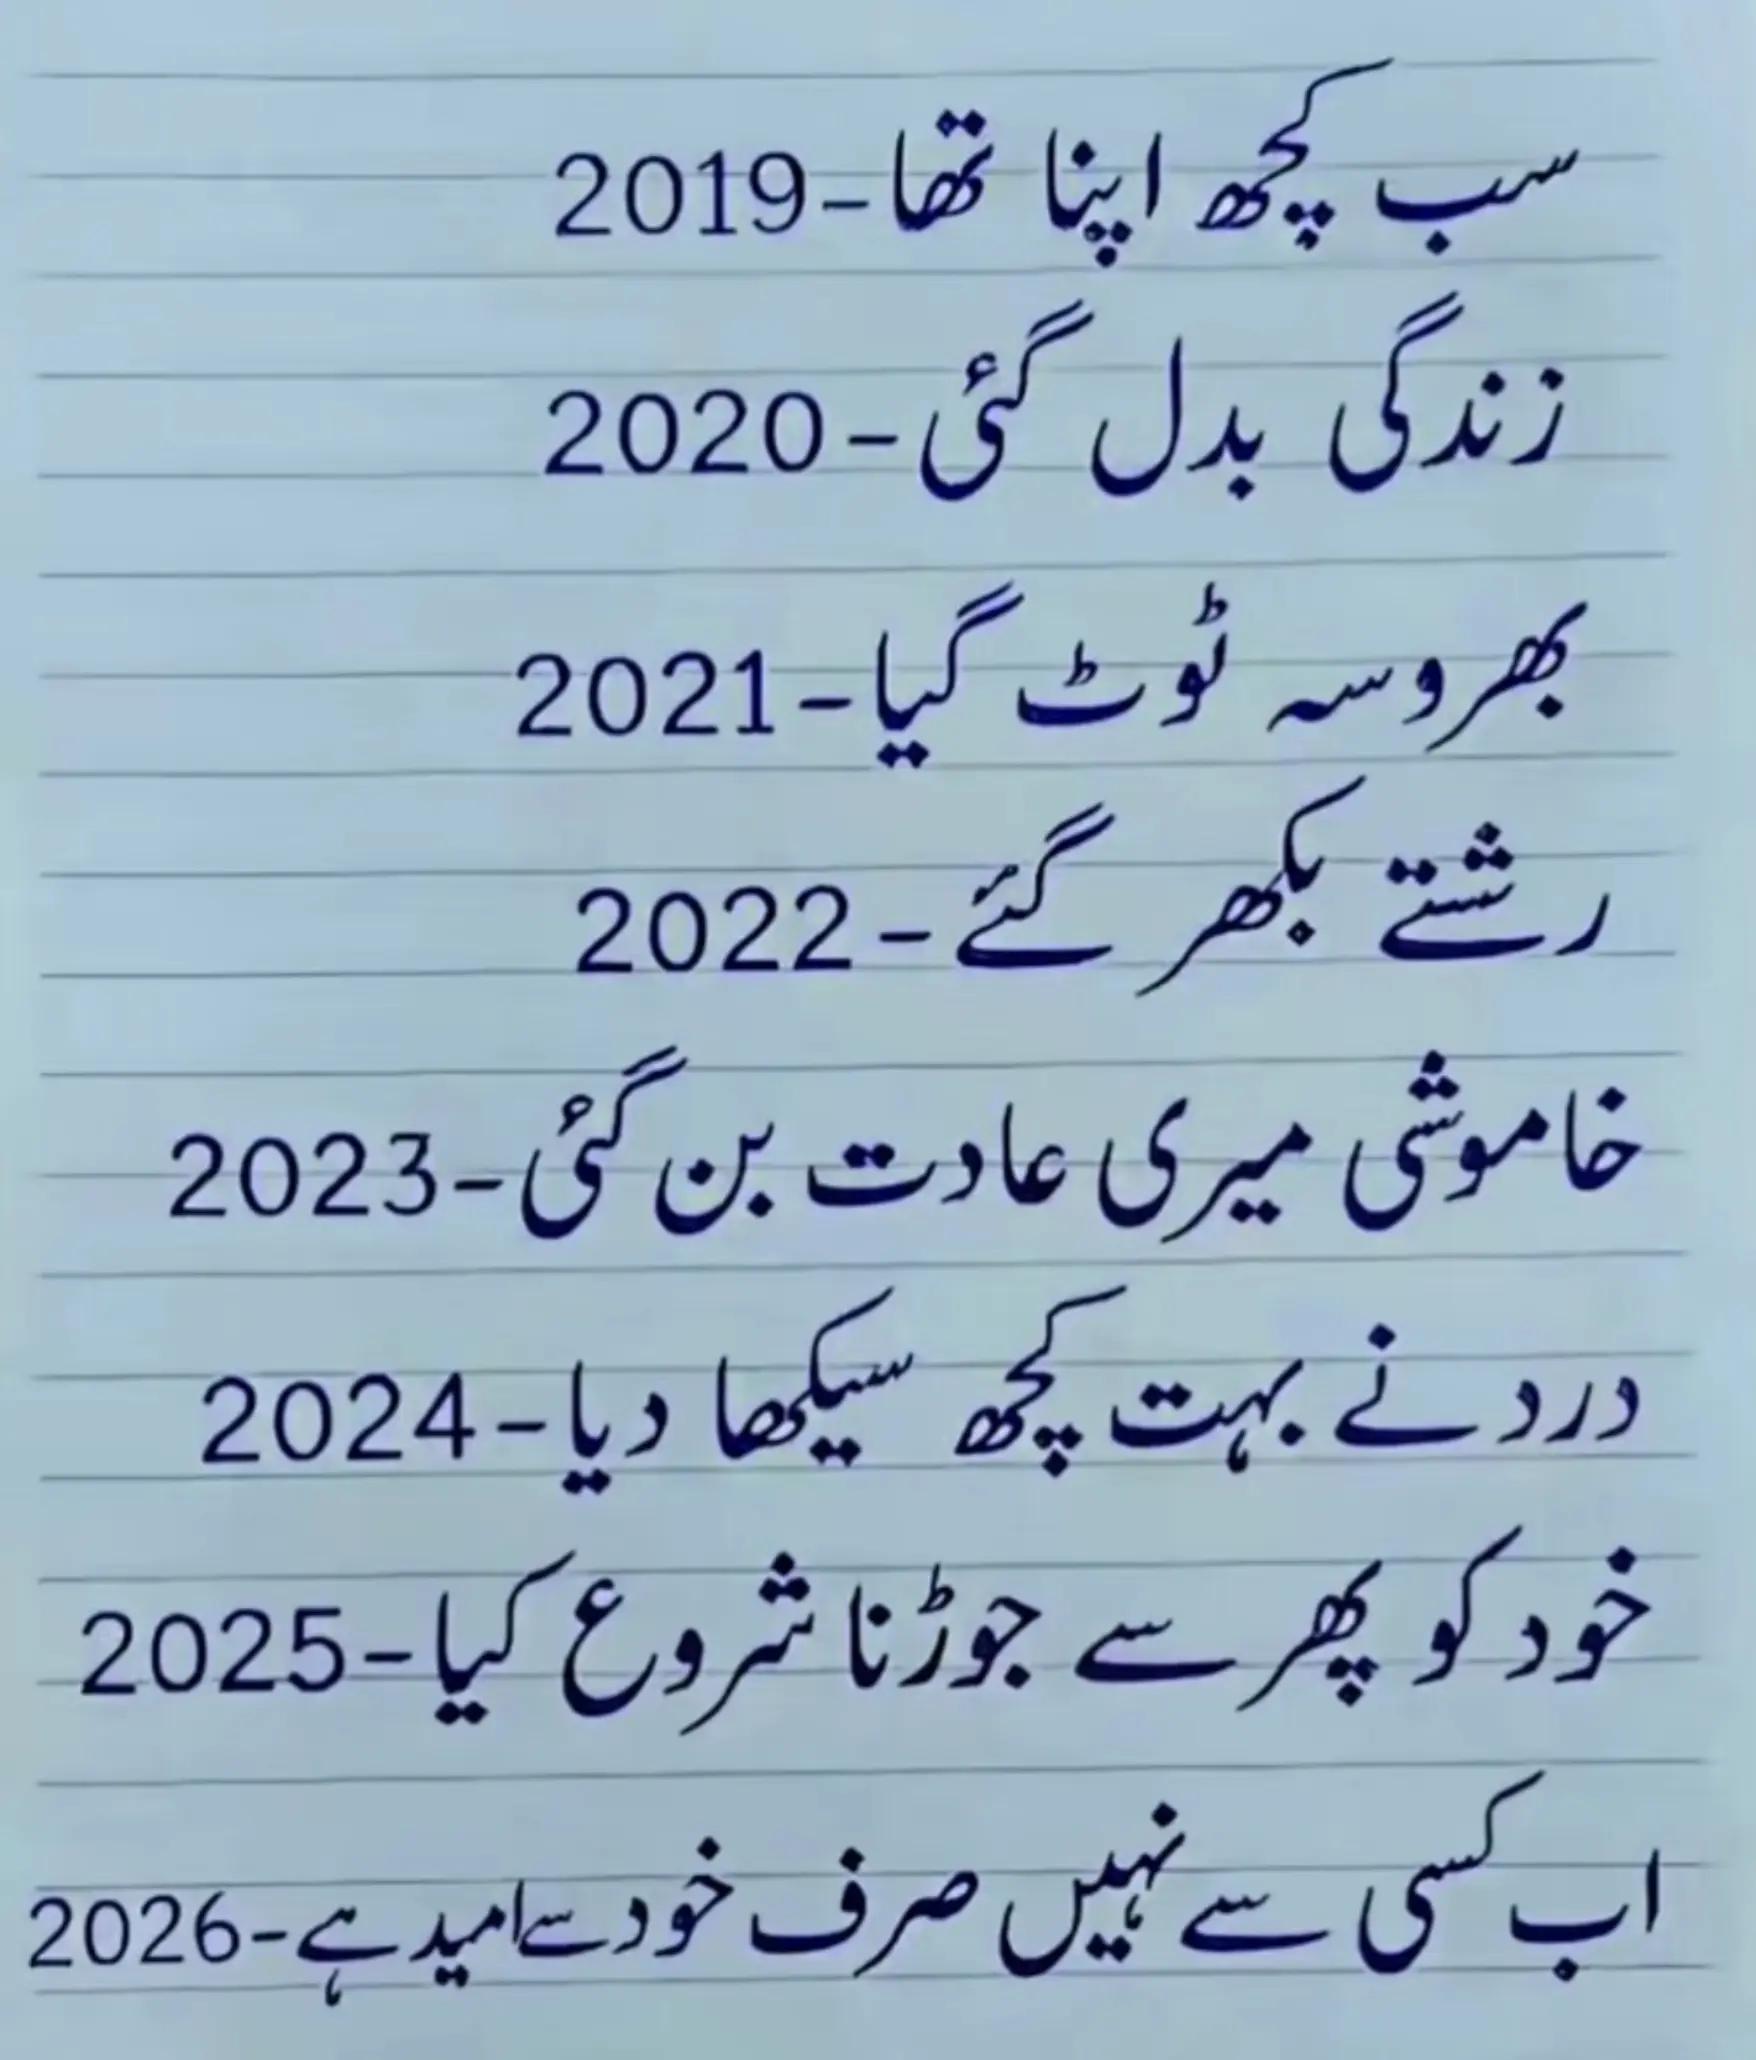 سب کچھ اپنا تھا-2019
زندگی بدل گئی-2020
بھروسہ ٹوٹ گیا-2021
رشتے بکھر گئے-2022
خاموشی میری عادت بن گئی-2023
درد نے بہت کچھ سیکھا دیا-2024
خود کو پھر سے جوڑنا شروع کیا-2025
اب کسی سے نہیں صرف خود سے امید ہے-2026